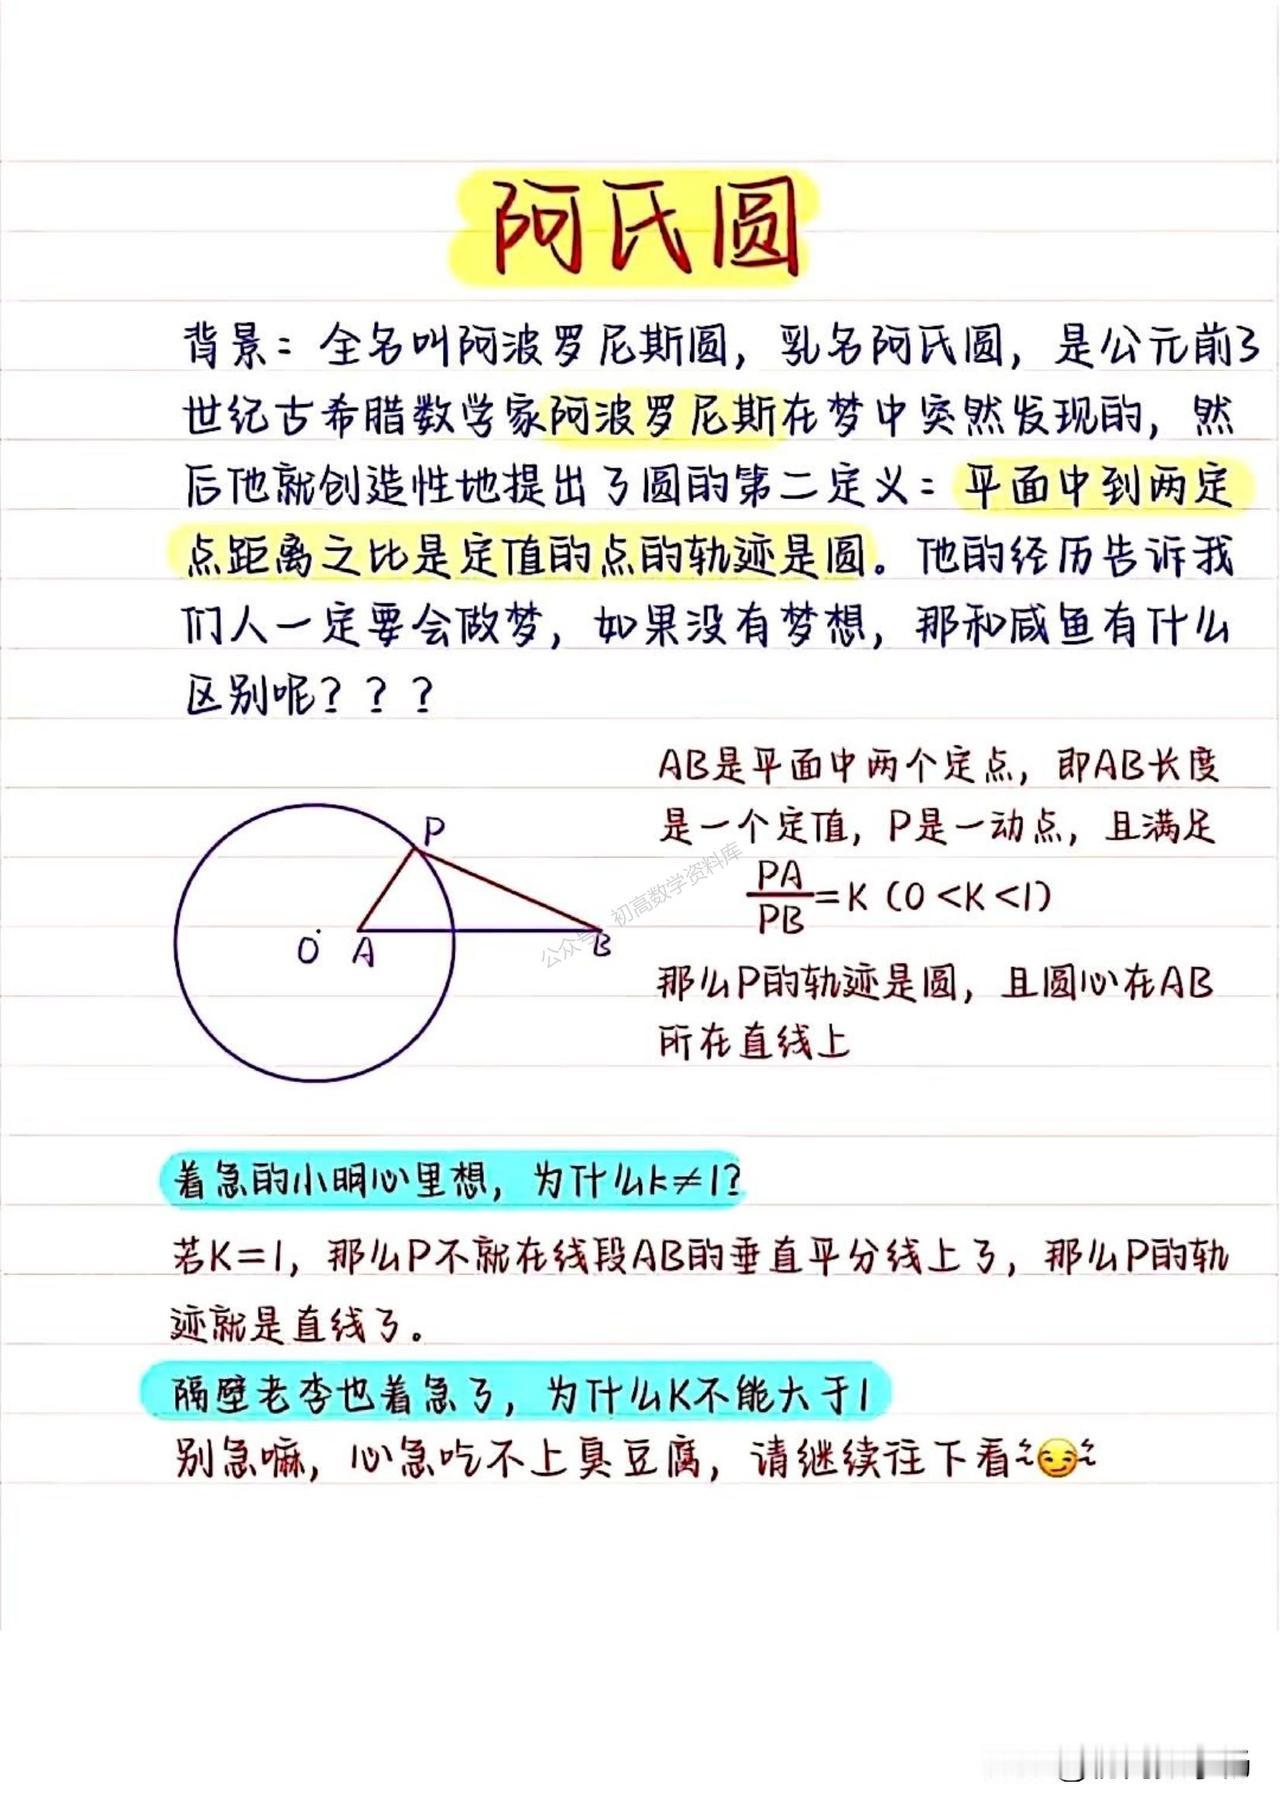 阿氏圆
背景：全名叫阿波罗尼斯圆，乳名阿氏圆，是公元前3
世纪古希腊数学家阿波罗尼斯在梦中突然发现的，然
后他就创造性地提出了圆的第二定义：平面中到两定
点距离之比是定值的点的轨迹是圆。他的经历告诉我
们人一定要会做梦，如果没有梦想，那和咸鱼有什么
区别呢？？？
AB是平面中两个定点，即AB长度
是一个定值，P是一动点，且满足
PA/PB=K（0<K<1）
那么P的轨迹是圆，且圆心在AB
所在直线上
P
O A B
公众号：初高数学资料库
着急的小明心里想，为什么k≠1？
若K=1，那么P不就在线段AB的垂直平分线上了，那么P的轨
迹就是直线了。
隔壁老李也着急了，为什么K不能大于1
别急嘛，心急吃不上臭豆腐，请继续往下看~😏~